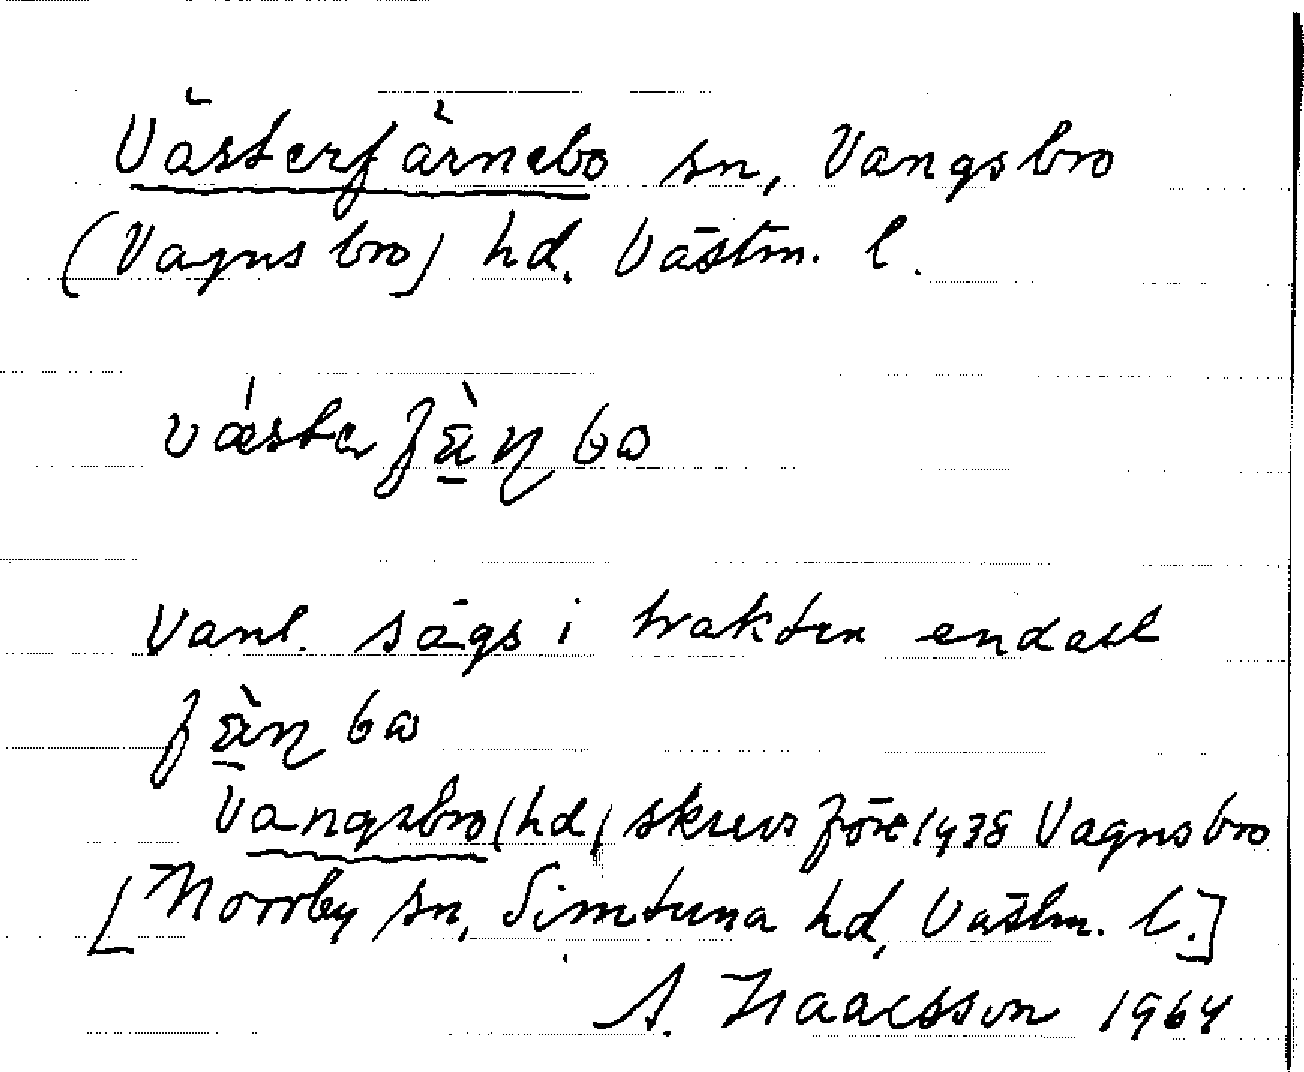 Västerfärnebo sn, Vangsbro
(Vagnsbro) hd. Västm. l.
væ̍stafæ̀ɳbω
Vanl. sägs i trakten endast
fæ̀ɳbω
Vangsbro (hd) skrevs före 1938 Vagnsbro
[Norrby sn, Simtuna hd, Västm. l.]
A. Isaacsson 1964